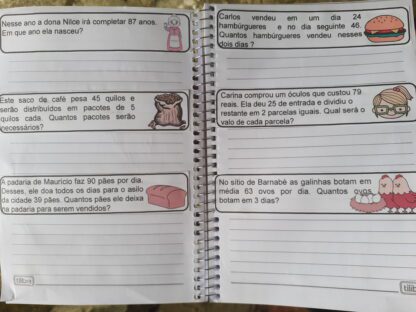 Nesse ano a dona Nilce irá completar 87 anos.
Em que ano ela nasceu?
Este saco de café pesa 45 quilos e
serão distribuídos em pacotes de 5
quilos cada. Quantos pacotes serão
necessários?
A padaria de Mauricio faz 90 pães por dia.
Desses, ele doa todos os dias para o asilo
da cidade 39 pães. Quantos pães ele deixa
na padaria para serem vendidos?
tilibra
Carlos vendeu em um dia 24
hambúrgueres e no dia seguinte 46.
Quantos hambúrgueres vendeu nesses
dois dias ?
Carina comprou um óculos que custou 79
reais. Ela deu 25 de entrada e dividiu o
restante em 2 parcelas iguais. Qual será o
valo de cada parcela?
No sítio de Barnabé as galinhas botam em
média 63 ovos por dia. Quantos ovos
botam em 3 dias?